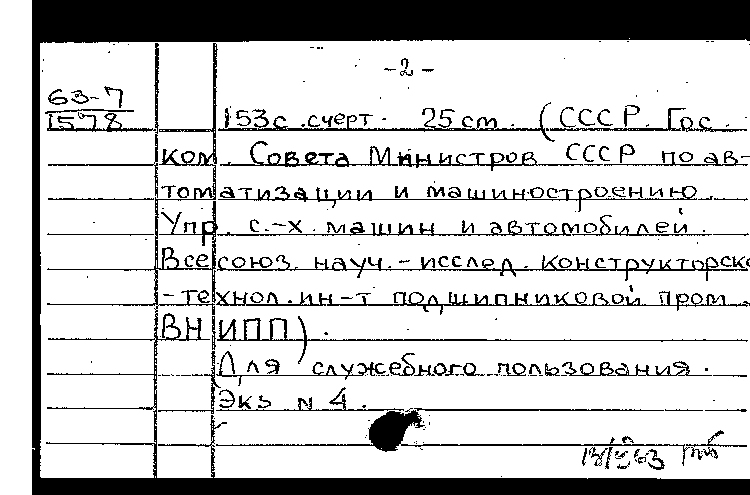 -2-
63-7
1578
153с. счерт. 25 см. (СССР. Гос.
ком. Совета Министров СССР по ав-
томатизации и машиностроению.
Упр. с.-х. машин и автомобилей.
Всесоюз. науч.-исслед. конструкторско
-технол. ин-т подшипниковой пром.
ВНИПП).
Для служебного пользования.
Экз N 4.